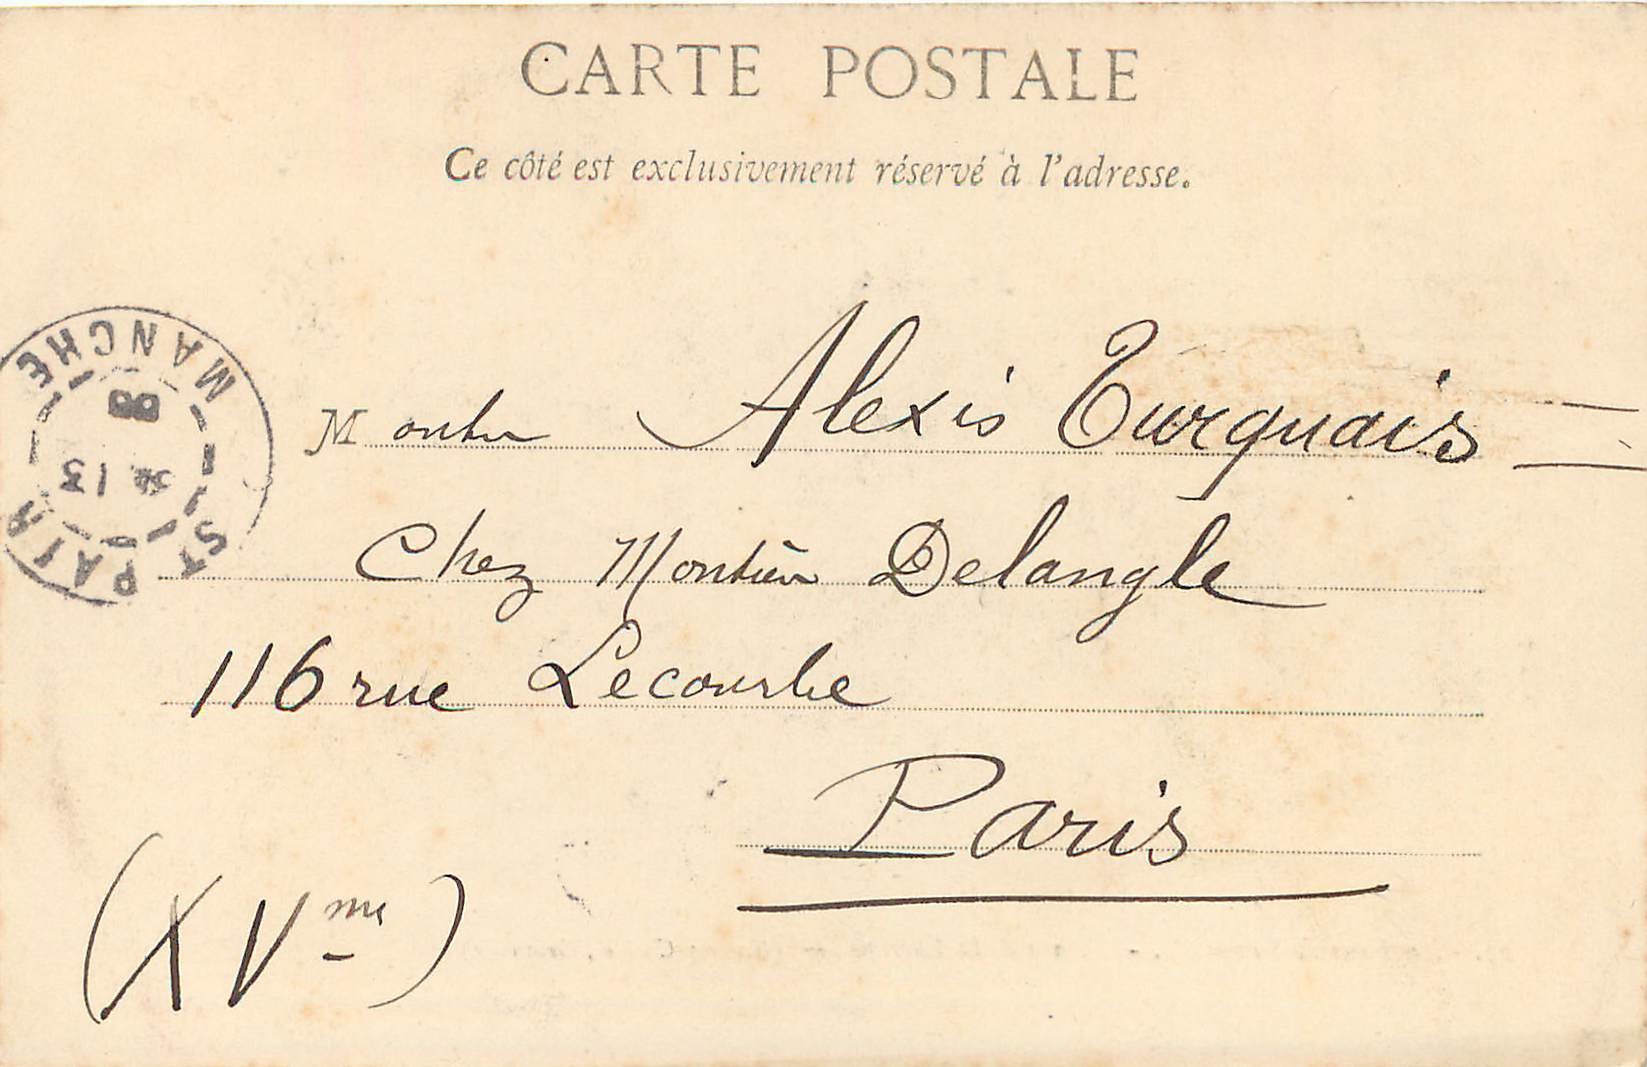 CARTE POSTALE
Ce côté est exclusivement réservé à l'adresse.
Alexis Turquais
Chez Delangle
116 rue Lecourbe
Paris
(XVme)
MANCHE
ST PAIR
13